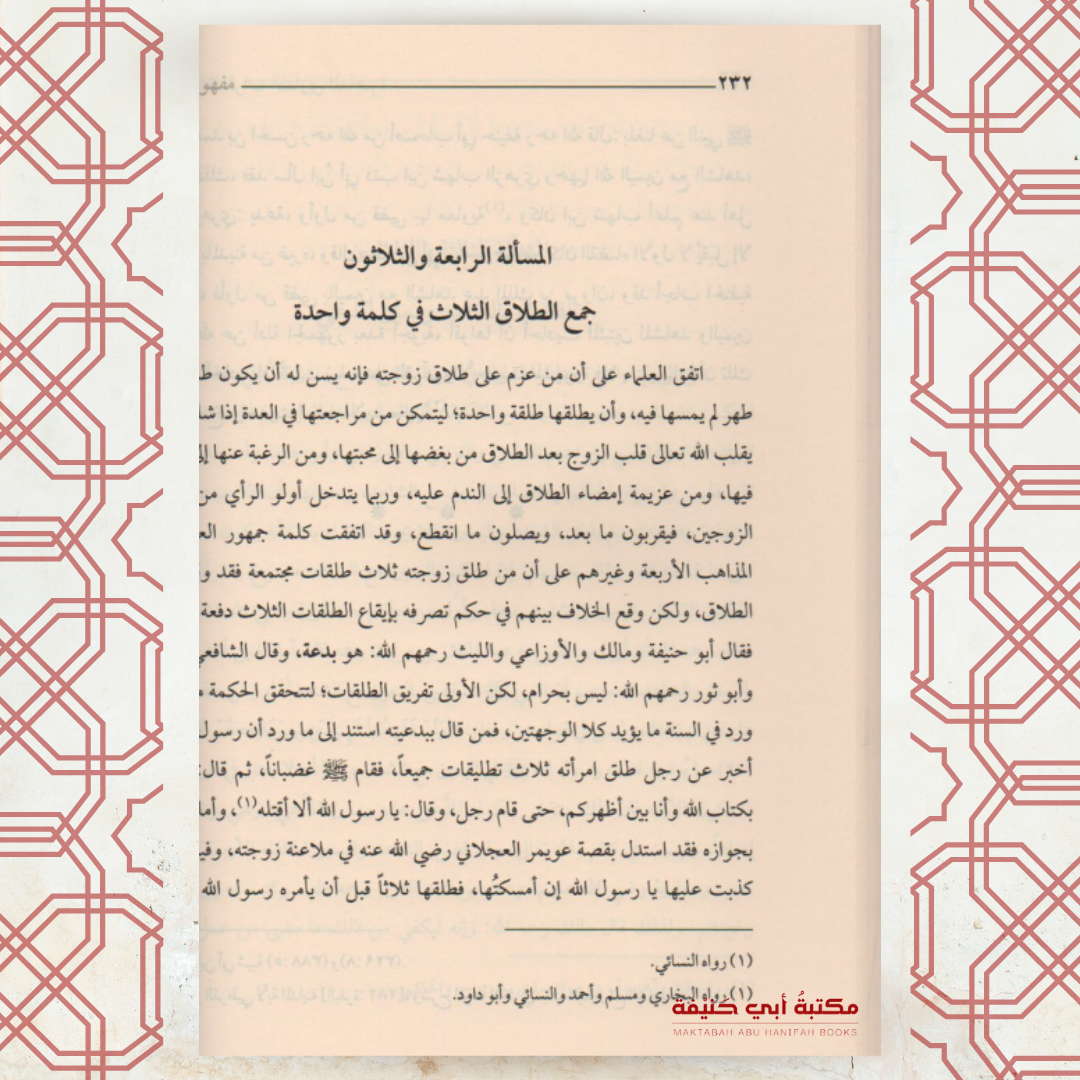 ٢٣٢
المسألة الرابعة والثلاثون
جمع الطلاق الثلاث في كلمة واحدة
اتفق العلماء على أن من عزم على طلاق زوجته فإنه يسن له أن يكون
طهر لم يمسها فيه، وأن يطلقها طلقة واحدة؛ ليتمكن من مراجعتها في العدة إذا
يقلب الله تعالى قلب الزوج بعد الطلاق من بغضها إلى محبتها، ومن الرغبة عنها
فيها، ومن عزيمة إمضاء الطلاق إلى الندم عليه، وربما يتدخل أولو الرأي
الزوجين، فيقربون ما بعد، ويصلون ما انقطع، وقد اتفقت كلمة جمهور
المذاهب الأربعة وغيرهم على أن من طلق زوجته ثلاث طلقات مجتمعة فقد
الطلاق، ولكن وقع الخلاف بينهم في حكم تصرفه بإيقاع الطلقات الثلاث دفعة
فقال أبو حنيفة ومالك والأوزاعي والليث رحمهم الله: هو بدعة، وقال
وأبو ثور رحمهم الله: ليس بحرام، لكن الأولى تفريق الطلقات؛ لتتحقق الحكمة
ورد في السنة ما يؤيد كلا الوجهتين، فمن قال ببدعيته استند إلى ما ورد أن رسول
أخبر عن رجل طلق امرأته ثلاث تطليقات جميعاً، فقام ﷺ غضباناً، ثم قال:
بكتاب الله وأنا بين أظهركم، حتى قام رجل، وقال: يا رسول الله ألا أقتله(١)، وأما
بجوازه فقد استدل بقصة عويمر العجلاني رضي الله عنه في ملاعنة زوجته،
كذبت عليها يا رسول الله إن أمسكتُها، فطلقها ثلاثاً قبل أن يأمره رسول الله
(١) رواه النسائي.
(١) رواه البخاري ومسلم وأحمد والنسائي وأبو داود.
مكتبةُ أبي حنيفة
MAKTABAH ABU HANIFAH BOOKS